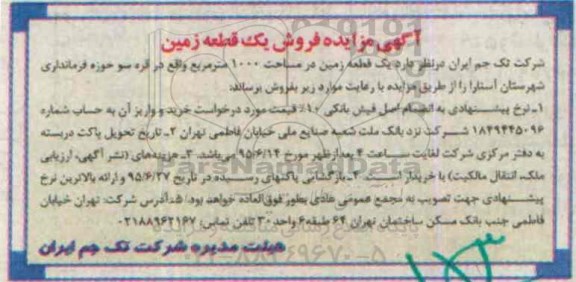 آگهی مزایده فروش یک قطعه زمین
شرکت تک جم ایران درنظر دارد یک قطعه زمین در مساحت ۱۰۰۰ مترمربع واقع در قره سو حوزه فرمانداری
شهرستان آستارا را از طریق مزایده با رعایت موارد زیر بفروش برساند:
۱ـ نرخ پیشنهادی به انضمام اصل فیش بانکی ۱۰٪ قیمت مورد درخواست خرید و واریز آن به حساب شماره
۱۸۴۹۴۴۵۰۹۶ شرکت نزد بانک ملت شعبه صنایع ملی خیابان فاطمی تهران ۲ـ تاریخ تحویل پاکت دربسته
به دفتر مرکزی شرکت لغایت ساعت ۴ بعدازظهر مورخ ۹۵/۶/۱۴ میباشد. ۳ـ هزینه‌های (نشر آگهی، ارزیابی
ملک، انتقال مالکیت) با خریدار است. ۴ـ بازگشایی پاکتهای رسیده در تاریخ ۹۵/۶/۲۷ و ارائه بالاترین نرخ
پیشنهادی جهت تصویب به مجمع عمومی عادی بطور فوق‌العاده خواهند بود. ۵ـ آدرس شرکت: تهران خیابان
فاطمی جنب بانک مسکن ساختمان تهران ۶۴ طبقه ۶ واحد ۳۰ تلفن تماس: ۰۲۱۸۸۹۶۲۱۶۷
هیئت مدیره شرکت تک جم ایران